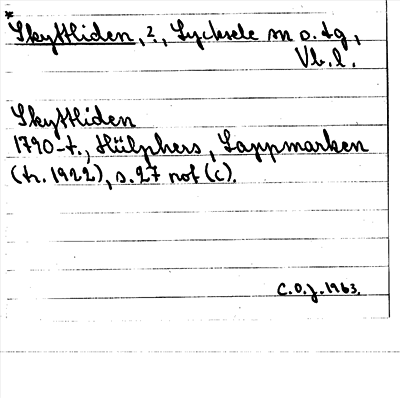 *
Skyttliden, 2, Lycksele sn o. tg,
Vb. l.
Skyttliden
1790-t., Hülphers, Lappmarken
(tr. 1922), s. 27 not (c).
C.O.J. 1963.